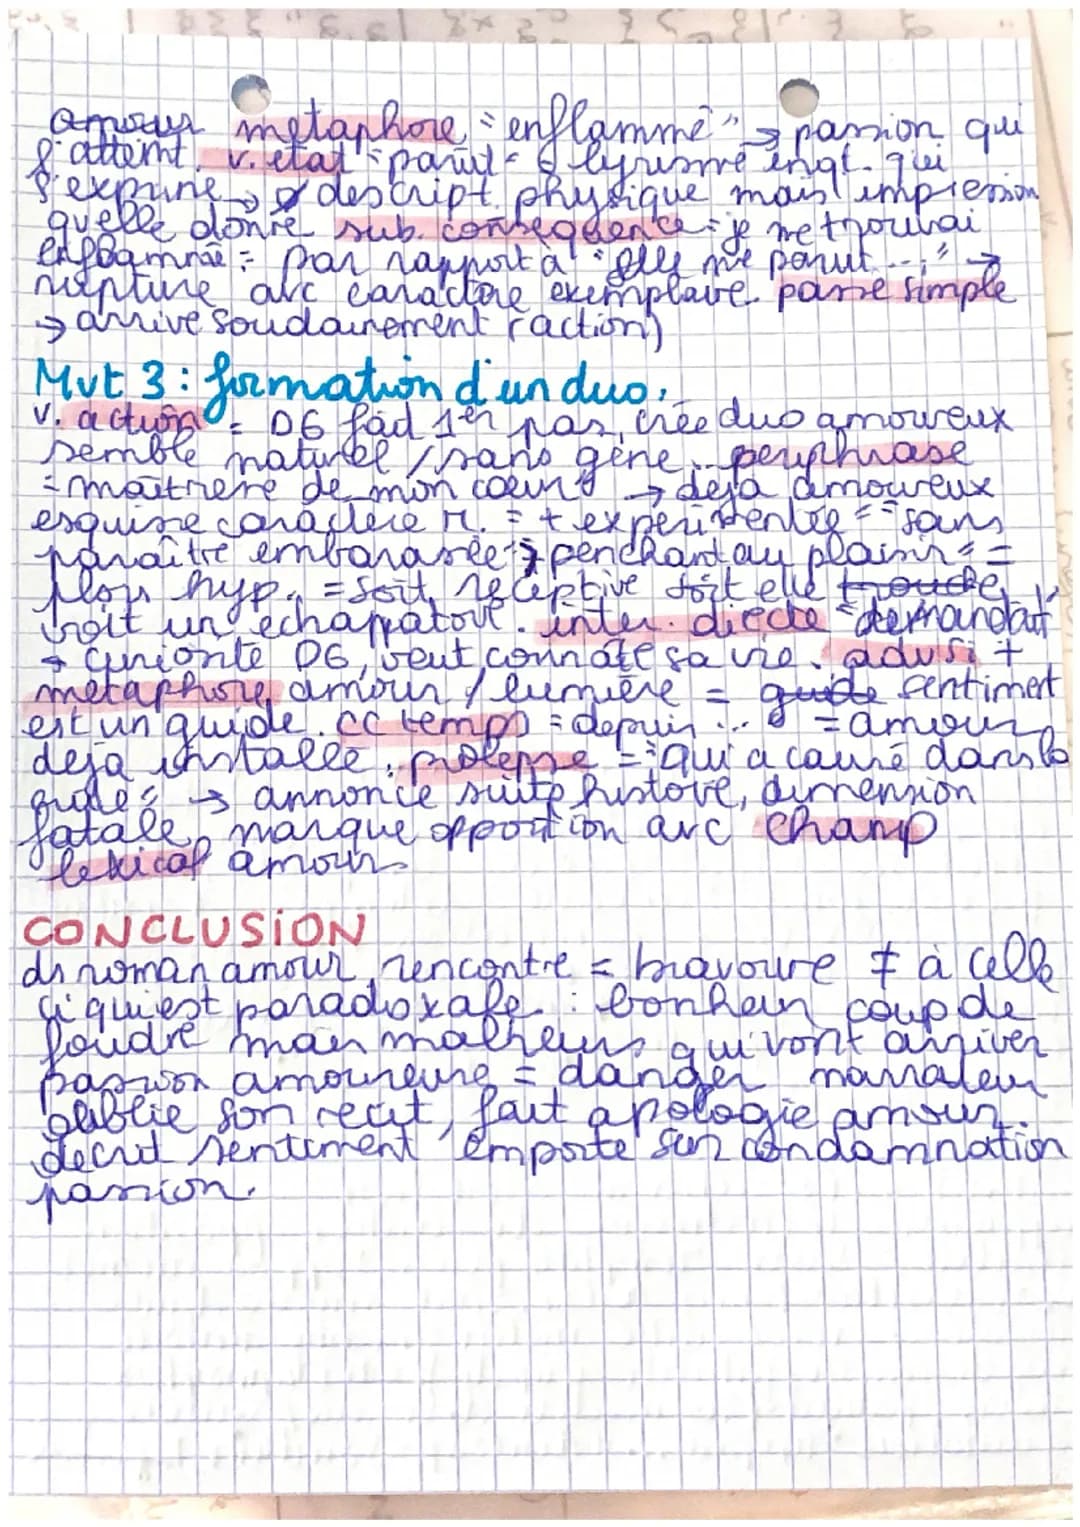 amour métaphore "enflammé" → passion qui
l'atteint. v. état "parut" = lyrisme
s'exprime → ø descript. physique mais impression
qu'elle donne sub. conséquence = je me trouvai
enflammé = par rapport à "elle me parut..." →
rupture avc caractère exemplaire. passé simple
→ arrive soudainement (action)
Mvt 3 : formation d'un duo.
v. action = DG fad 1er pas, crée duo amoureux
semble naturel / sans gêne. periphrase
= maîtresse de mon coeur → déjà amoureux
esquisse caractère M. = + expérimentée = "sans
paraître embarasée" → penchant au plaisir" =
plsrs hyp. = soit réceptive soit elle trouche
voit un échappatoire. inter. directe "demandai"
→ curiosité DG, veut connaîte sa vie. advsi +
métaphore amour / lumière = guide sentiment
est un guide. cc temps = depuis ... = amour
déjà installé. prolepse = "qui a causé dans la
suite" → annonce suite histoire, dimension
fatale, marque opposition avc champ
lexical amour
CONCLUSION
ds roman amour rencontre = bravoure ≠ à celle
ci qui est paradoxale : bonheur coup de
foudre mais malheurs qui vont arriver
passion amoureuse = danger narrateur
oublie son recit, fait apologie amour.
décrit sentiment emporte sur condamnation
passion.